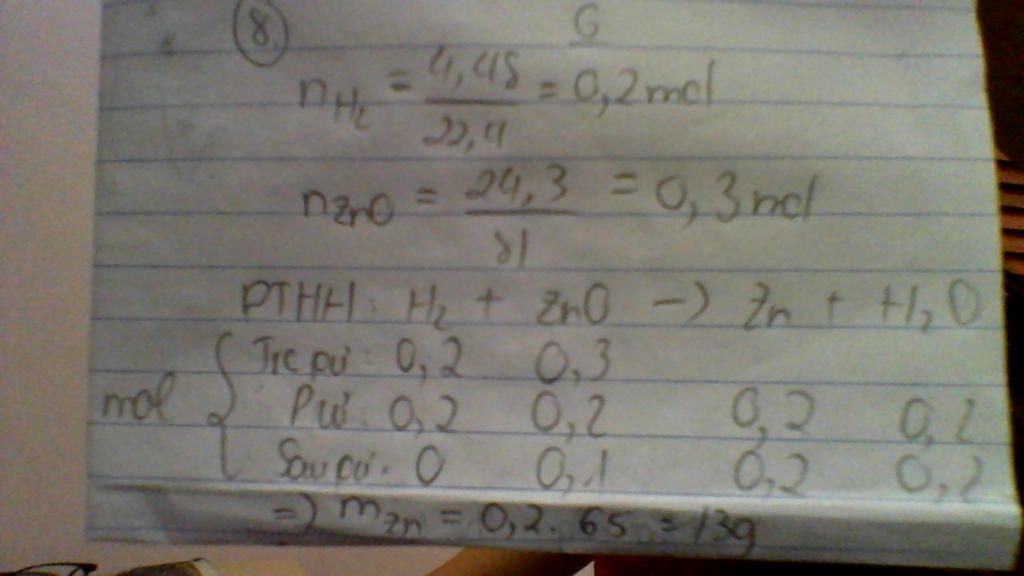 8. G
nH2 = 4,48 / 22,4 = 0,2 mol
nZnO = 24,3 / 81 = 0,3 mol
PTHH: H2 + ZnO -> Zn + H2O
mol { Trc pư: 0,2 0,3
Pư: 0,2 0,2 0,2 0,2
Sau pư: 0 0,1 0,2 0,2
=> mZn = 0,2 . 65 = 13g